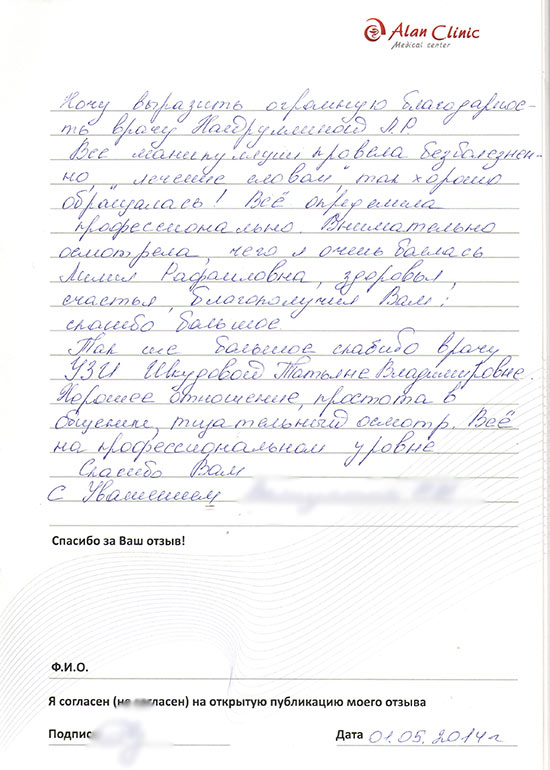 Alan Clinic
Medical center
Хочу выразить огромную благодарнос-
ть врачу Л.Р.
Все манипуляции провела безболезнен-
но, "лечение словам", так хорошо
обращалась! Всё определила
профессионально. Внимательно
осмотрела, чего я очень боялась
Лилия Рафаиловна, здоровья,
счастья, благополучия Вам!
спасибо большое.
Так же большое спасибо врачу
УЗИ Шкудовой Татьяне Владимировне.
Хорошее отношение, простота в
общении, тщательный осмотр. Всё
на профессиональном уровне
Спасибо Вам
С Уважением
Спасибо за Ваш отзыв!
Ф.И.О.
Я согласен (не согласен) на открытую публикацию моего отзыва
Подпись
Дата 01.05.2014г